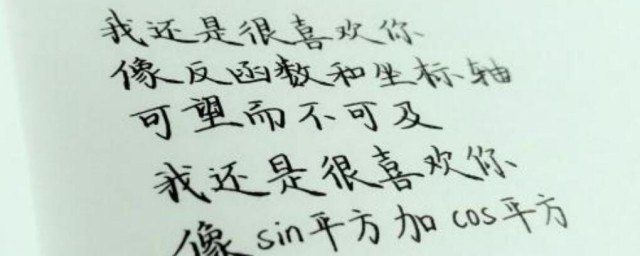 我还是很喜欢你
像反函数和坐标轴
可望而不可及
我还是很喜欢你
像sin平方加cos平方